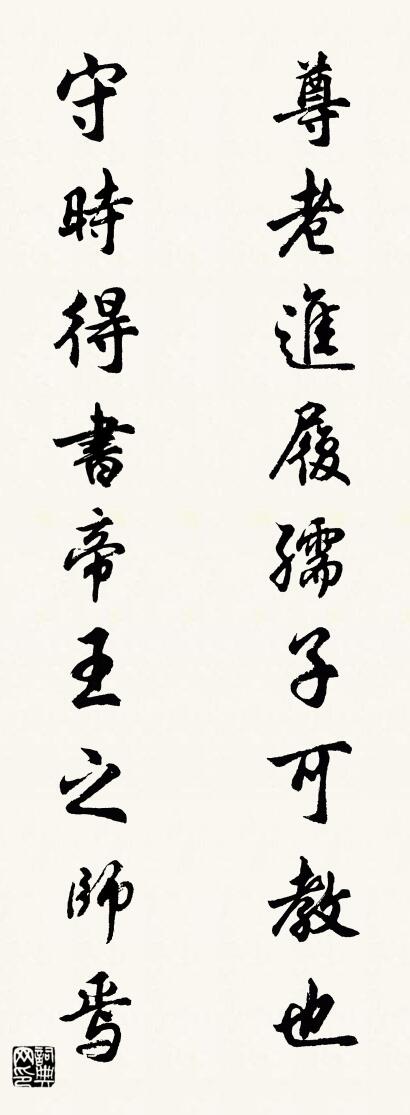 尊老進履孺子可教也
守時得書帝王之師焉
詞典
网印